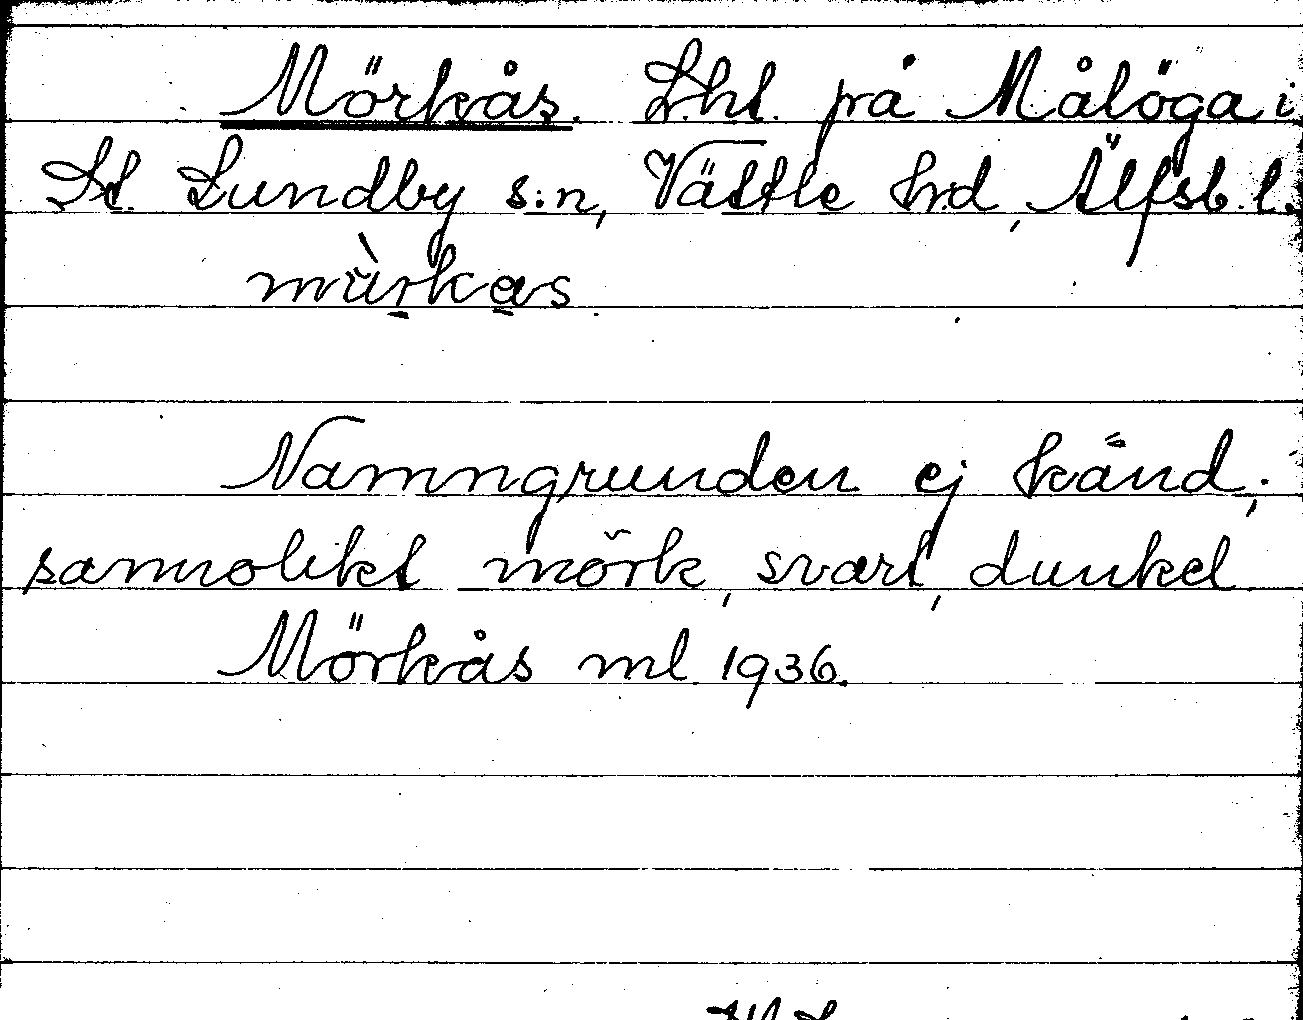 Mörkås. Lht. på Målöga i
St. Lundby s:n, Vättle hrd, Älfsb. l.
Namngrunden ej känd;
sannolikt mörk, svart, dunkel
Mörkås ml 1936.